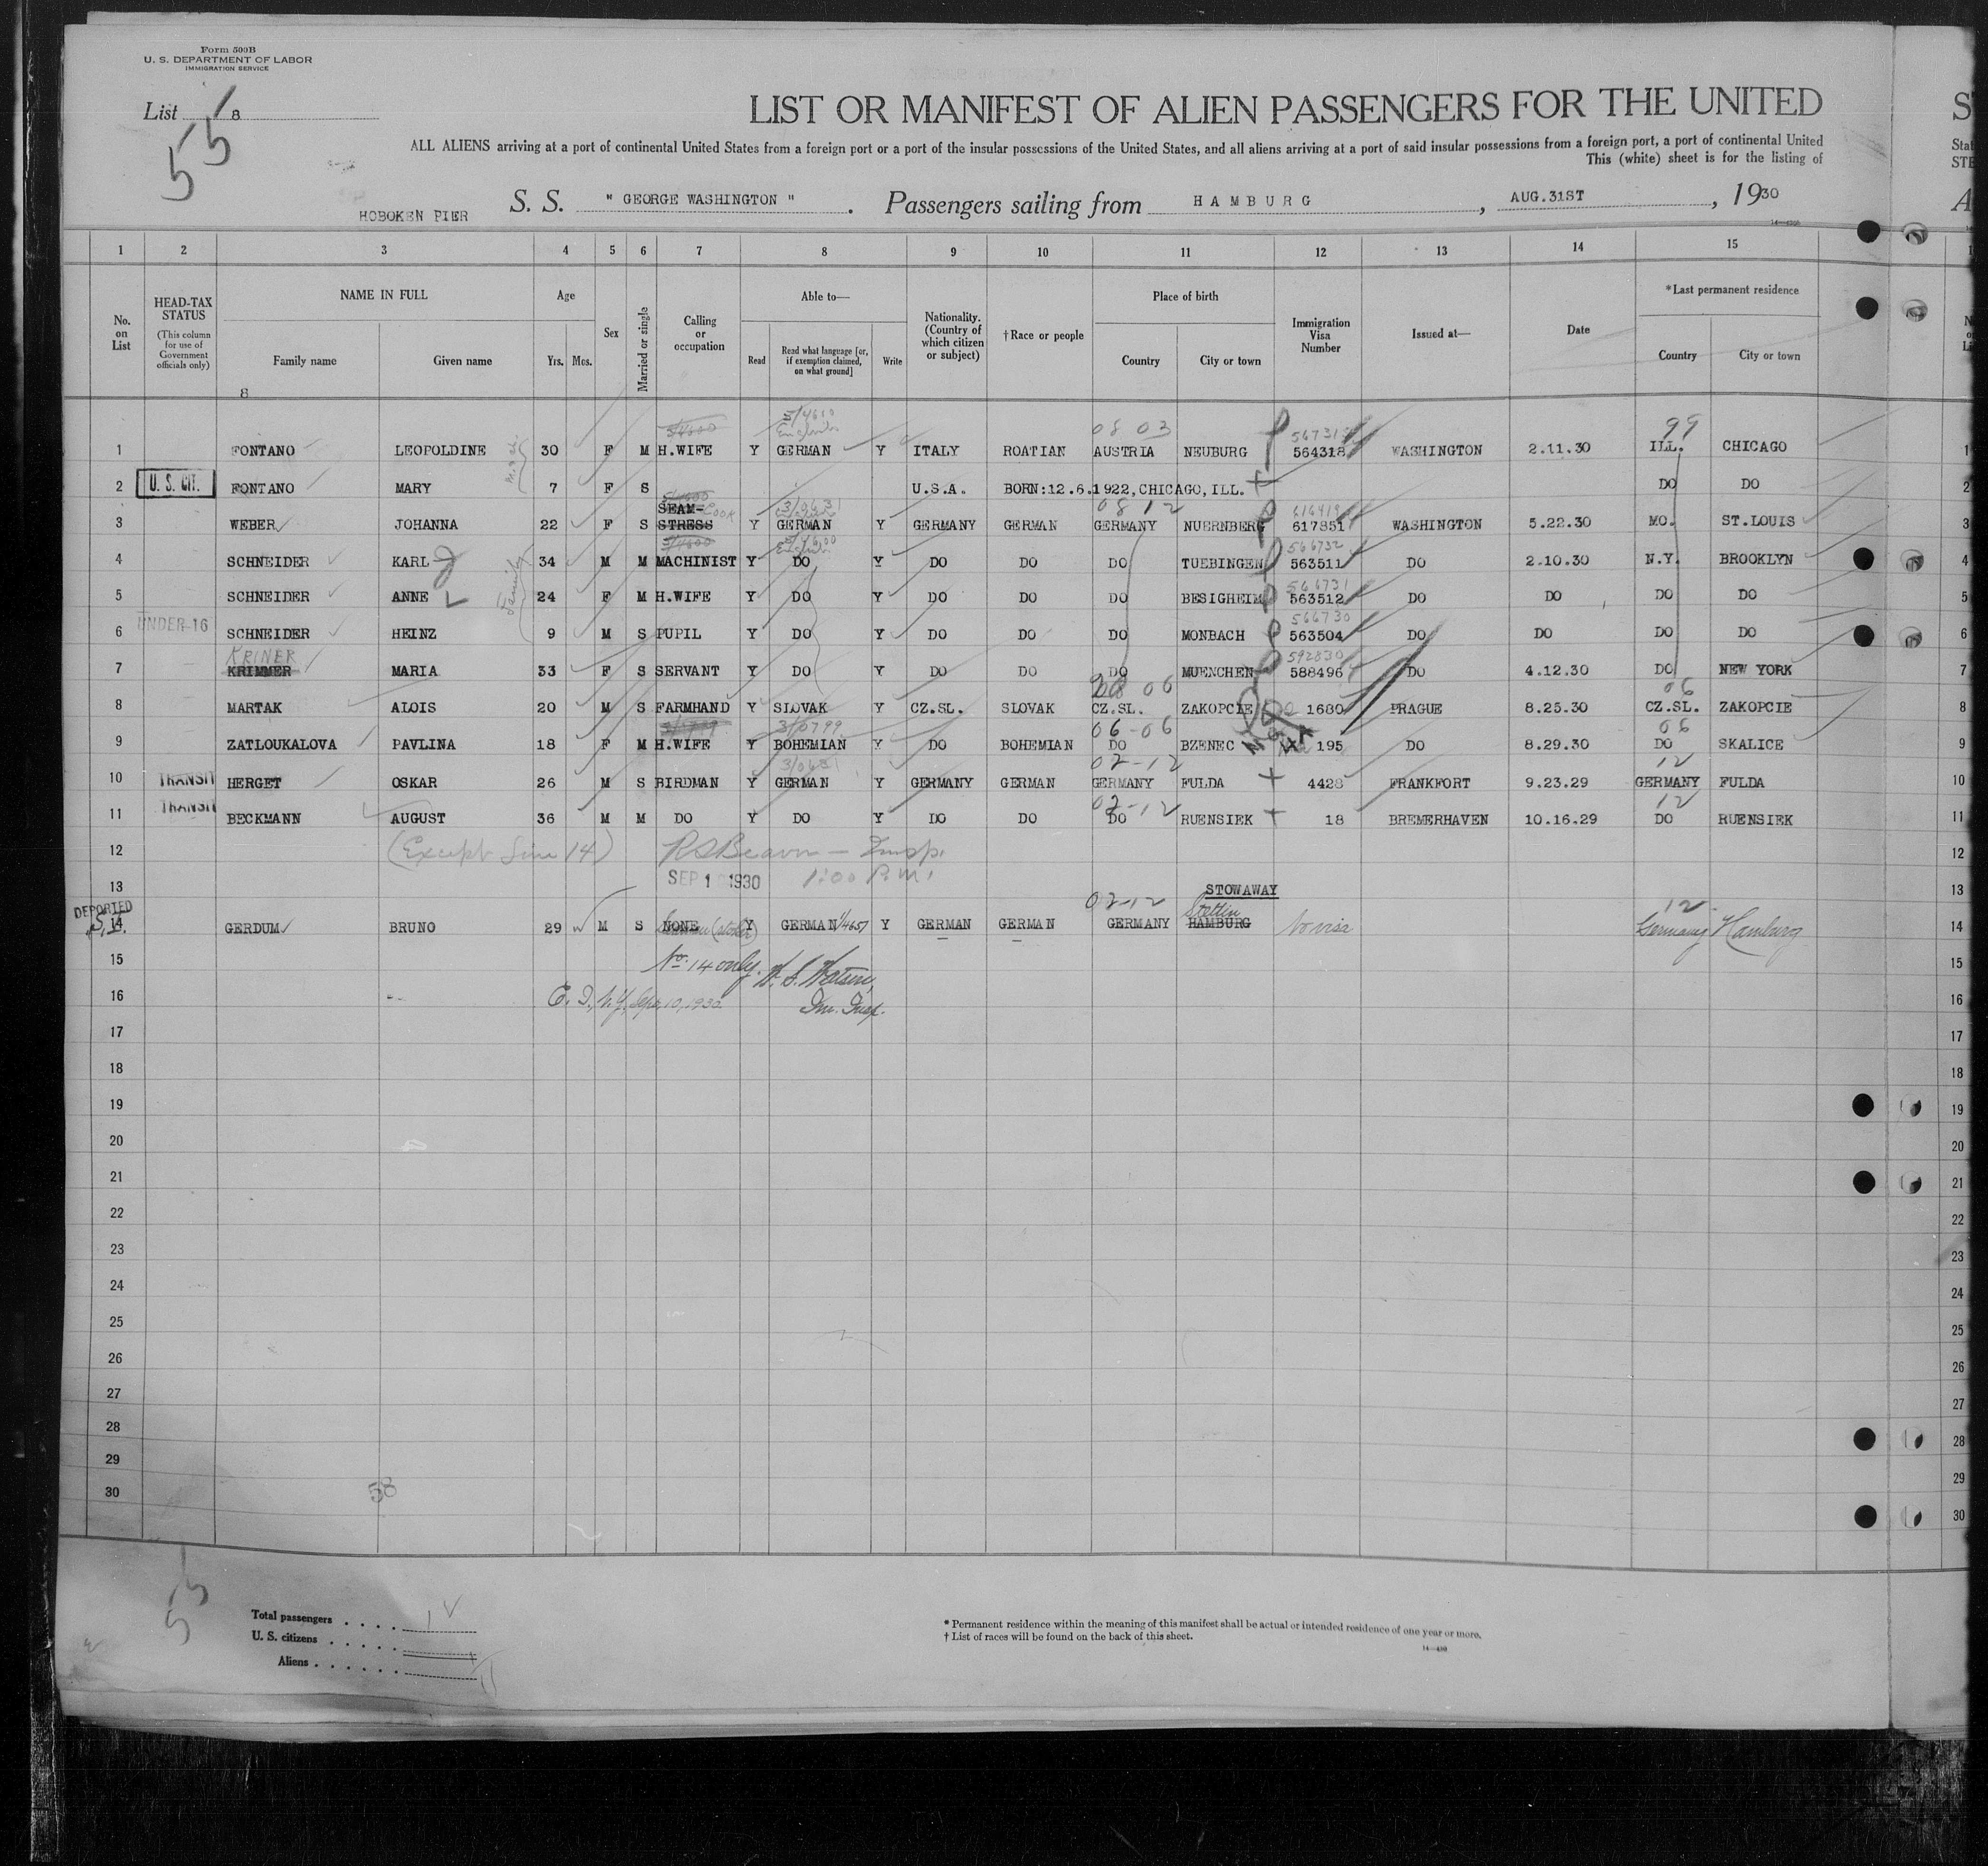 Form 500B
U. S. DEPARTMENT OF LABOR
IMMIGRATION SERVICE
List 8
55
LIST OR MANIFEST OF ALIEN PASSENGERS FOR THE UNITED
ALL ALIENS arriving at a port of continental United States from a foreign port or a port of the insular possessions of the United States, and all aliens arriving at a port of said insular possessions from a foreign port, a port of continental United
This (white) sheet is for the listing of
HOBOKEN PIER S. S. " GEORGE WASHINGTON " . Passengers sailing from HAMBURG , AUG.31ST , 1930
1 2 3 4 5 6 7 8 9 10 11 12 13 14 15
No. on List
HEAD-TAX STATUS (This column for use of Government officials only)
NAME IN FULL Family name Given name
Age Yrs. Mos.
Sex
Married or single
Calling or occupation
Able to— Read Read what language [or, if exemption claimed, on what ground] Write
Nationality. (Country of which citizen or subject)
†Race or people
Place of birth Country City or town
Immigration Visa Number
Issued at—
Date
*Last permanent residence Country City or town
8
54600 5/4610 English 08 03 99
1 FONTANO LEOPOLDINE 30 F M H.WIFE Y GERMAN Y ITALY ROATIAN AUSTRIA NEUBURG 564318 WASHINGTON 2.11.30 ILL. CHICAGO 1
2 U. S. CIT. FONTANO MARY 7 F S U.S.A. BORN:12.6.1922,CHICAGO,ILL. DO DO 2
08 12 616419
3 WEBER JOHANNA 22 F S SEAM-STRESS Cook Y GERMAN Y GERMANY GERMAN GERMANY NUERNBERG 617851 WASHINGTON 5.22.30 MO. ST.LOUIS 3
English 566732
4 SCHNEIDER KARL Family 34 M M MACHINIST Y DO Y DO DO DO TUEBINGEN 563511 DO 2.10.30 N.Y. BROOKLYN 4
566731
5 SCHNEIDER ANNE 24 F M H.WIFE Y DO Y DO DO DO BESIGHEIM 563512 DO DO DO DO 5
566730
6 UNDER 16 SCHNEIDER HEINZ 9 M S PUPIL Y DO Y DO DO DO MONBACH 563504 DO DO DO DO 6
KRINER 592830
7 KRIMMER MARIA 33 F S SERVANT Y DO Y DO DO DO MUENCHEN 588496 DO 4.12.30 DO NEW YORK 7
06 06
8 MARTAK ALOIS 20 M S FARMHAND Y SLOVAK Y CZ.SL. SLOVAK CZ.SL. ZAKOPCIE 1680 PRAGUE 8.25.30 CZ.SL. ZAKOPCIE 8
3/0799 06-06 06
9 ZATLOUKALOVA PAVLINA 18 F M H.WIFE Y BOHEMIAN Y DO BOHEMIAN DO BZENEC 195 DO 8.29.30 DO SKALICE 9
02-12 12
10 TRANSIT HERGET OSKAR 26 M S BIRDMAN Y GERMAN Y GERMANY GERMAN GERMANY FULDA 4428 FRANKFORT 9.23.29 GERMANY FULDA 10
02-12 12
11 TRANSIT BECKMANN AUGUST 36 M M DO Y DO Y DO DO DO RUENSIEK 18 BREMERHAVEN 10.16.29 DO RUENSIEK 11
12 (Except Line 14) RSBeavin — Insp. 12
13 SEP 1 1930 1:00 P.M. STOWAWAY 13
02-12 Stettin 12
DEPORTED
14 GERDUM BRUNO 29 M S NONE Seaman (stoker) Y GERMAN 1/4651 Y GERMAN GERMAN GERMANY HAMBURG No visa Germany Hamburg 14
15 No. 14 only. W. S. Watson, 15
16 E. I., N.Y., Sep. 10, 1930. Im. Insp. 16
17 17
18 18
19 19
20 20
21 21
22 22
23 23
24 24
25 25
26 26
27 27
28 28
29 29
30 30
58
55
Total passengers . . . .
U. S. citizens . . . . .
Aliens . . . . . . 11
* Permanent residence within the meaning of this manifest shall be actual or intended residence of one year or more.
† List of races will be found on the back of this sheet.